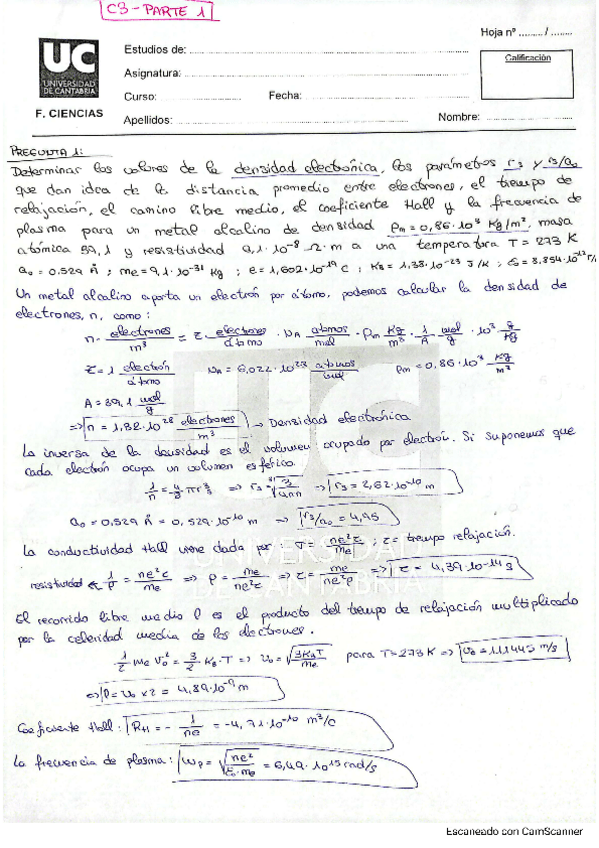 C3 - PARTE 1
Hoja nº ......... / .........
UC
UNIVERSIDAD
DE CANTABRIA
F. CIENCIAS
Estudios de:
Asignatura:
Curso: Fecha:
Apellidos: Nombre:
Calificación
PREGUNTA 1:
Determinar los valores de la densidad electrónica, los parámetros r_s y r_s/a_0
que dan idea de la distancia promedio entre electrones, el tiempo de
relajación, el camino libre medio, el coeficiente Hall y la frecuencia de
plasma para un metal alcalino de densidad ρ_m = 0,86·10³ Kg/m³, masa
atómica 39,1 y resistividad 9,1·10⁻⁸ Ω·m a una temperatura T = 273 K
a_0 = 0.529 Å ; m_e = 9,1·10⁻³¹ kg ; e = 1,602·10⁻¹⁹ C ; K_B = 1,38·10⁻²³ J/K ; ε_0 = 8,854·10⁻¹²
Un metal alcalino aporta un electrón por átomo, podemos calcular la densidad de
electrones, n, como:
n · electrones/m³ = Z · electrones/átomo · N_A átomos/mol · ρ_m Kg/m³ · 1/A · mol/g · 10³ g/Kg
Z = 1 electrón/átomo N_A = 6,022·10²³ átomos/mol ρ_m = 0,86·10³ Kg/m³
A = 39,1 mol/g
⇒ n = 1,32·10²⁸ electrones/m³ → Densidad electrónica
La inversa de la densidad es el volumen ocupado por electrón. Si suponemos que
cada electrón ocupa un volumen esférico.
1/n = 4/3 π r_s³ ⇒ r_s = ∛(3/4πn) ⇒ r_s = 2,62·10⁻¹⁰ m
a_0 = 0,529 Å = 0,529·10⁻¹⁰ m ⇒ r_s/a_0 = 4,95
La conductividad Hall viene dada por σ = ne²τ/m_e ; τ = tiempo relajación.
resistividad ← 1/ρ = ne²τ/m_e ⇒ ρ = m_e/ne²τ ⇒ τ = m_e/ne²ρ ⇒ τ = 4,39·10⁻¹⁴ s
El recorrido libre medio l es el producto del tiempo de relajación multiplicado
por la celeridad media de los electrones.
1/2 m_e v_0² = 3/2 K_B·T ⇒ v_0 = √(3K_BT/m_e) para T = 273 K ⇒ v_0 = 111445 m/s
⇔ l = v_0 × τ = 4,89·10⁻⁹ m
Coeficiente Hall: R_H = - 1/ne = -4,71·10⁻¹⁰ m³/C
La frecuencia de plasma: ω_p = √(ne²/ε_0·m_e) = 6,49·10¹⁵ rad/s
UC
UNIVERSIDAD
DE CANTABRIA
Escaneado con CamScanner